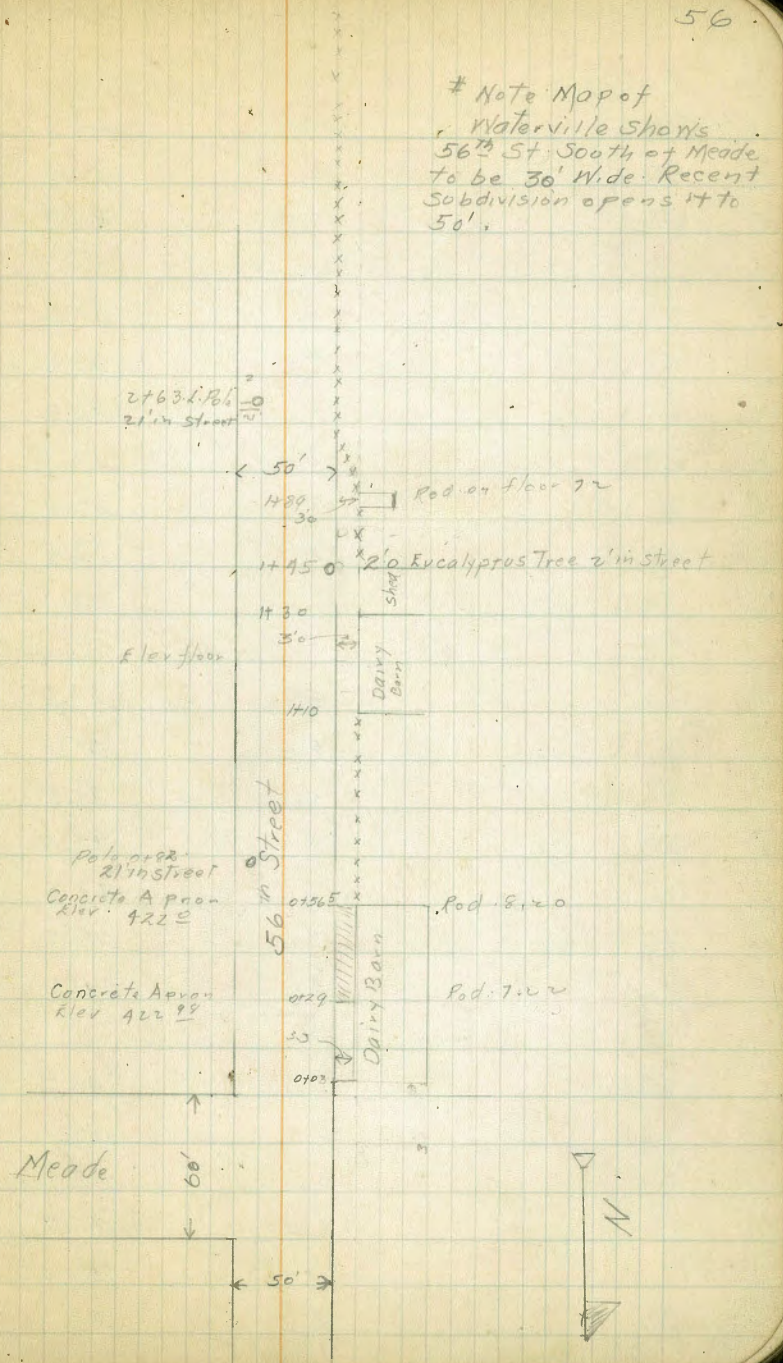 56
# Note Map of
Waterville Shows
56th St. South of Meade
to be 30' Wide. Recent
Subdivision opens it to
50'.
2+63
21' in Street
50'
1+89
3'0
Rod on floor
1+45
2'0 Eucalyptus Tree 2' in street
Shed
1+30
3'0
Elev floor
Dairy
Barn
1+10
56th Street
Pole 0+82
21' in street
Concrete Apron
Elev. 422 0
0+56 5
Rod 8.20
Dairy Barn
Concrete Apron
Elev 422 98
0+29
Rod 7.22
0+03
Meade
60'
50'
N